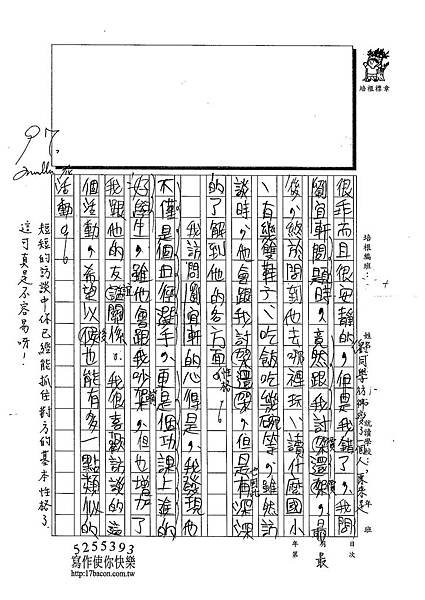 培根標章
培根編班：
姓
就讀學校：
年
班
目次
年第
很乖而且很安靜的，但是我錯了，我問
劉宜軒問題時，竟然跟我討架還架，最
後，終於問到他去哪裡玩、讀什麼國小
、有幾雙鞋子、吃飯吃幾碗等，雖然訪
談時，他會跟我討架還架，但是有深深
的了解到他的各方面性格。
我訪問劉宜軒的心得是，我發現他
不僅是個田徑選手，更是個功課上進的
好學生，雖他會跟我吵架，但也增加了
我跟他的友誼關係。我很喜歡訪談的這
個活動，希望以後也能有多一點類似的
活動。
97.
短短的訪談中你已經能抓住對方的基本性格了，
這可真是不容易呀！
5255393
寫作使你快樂
http://17bacon.com.tw